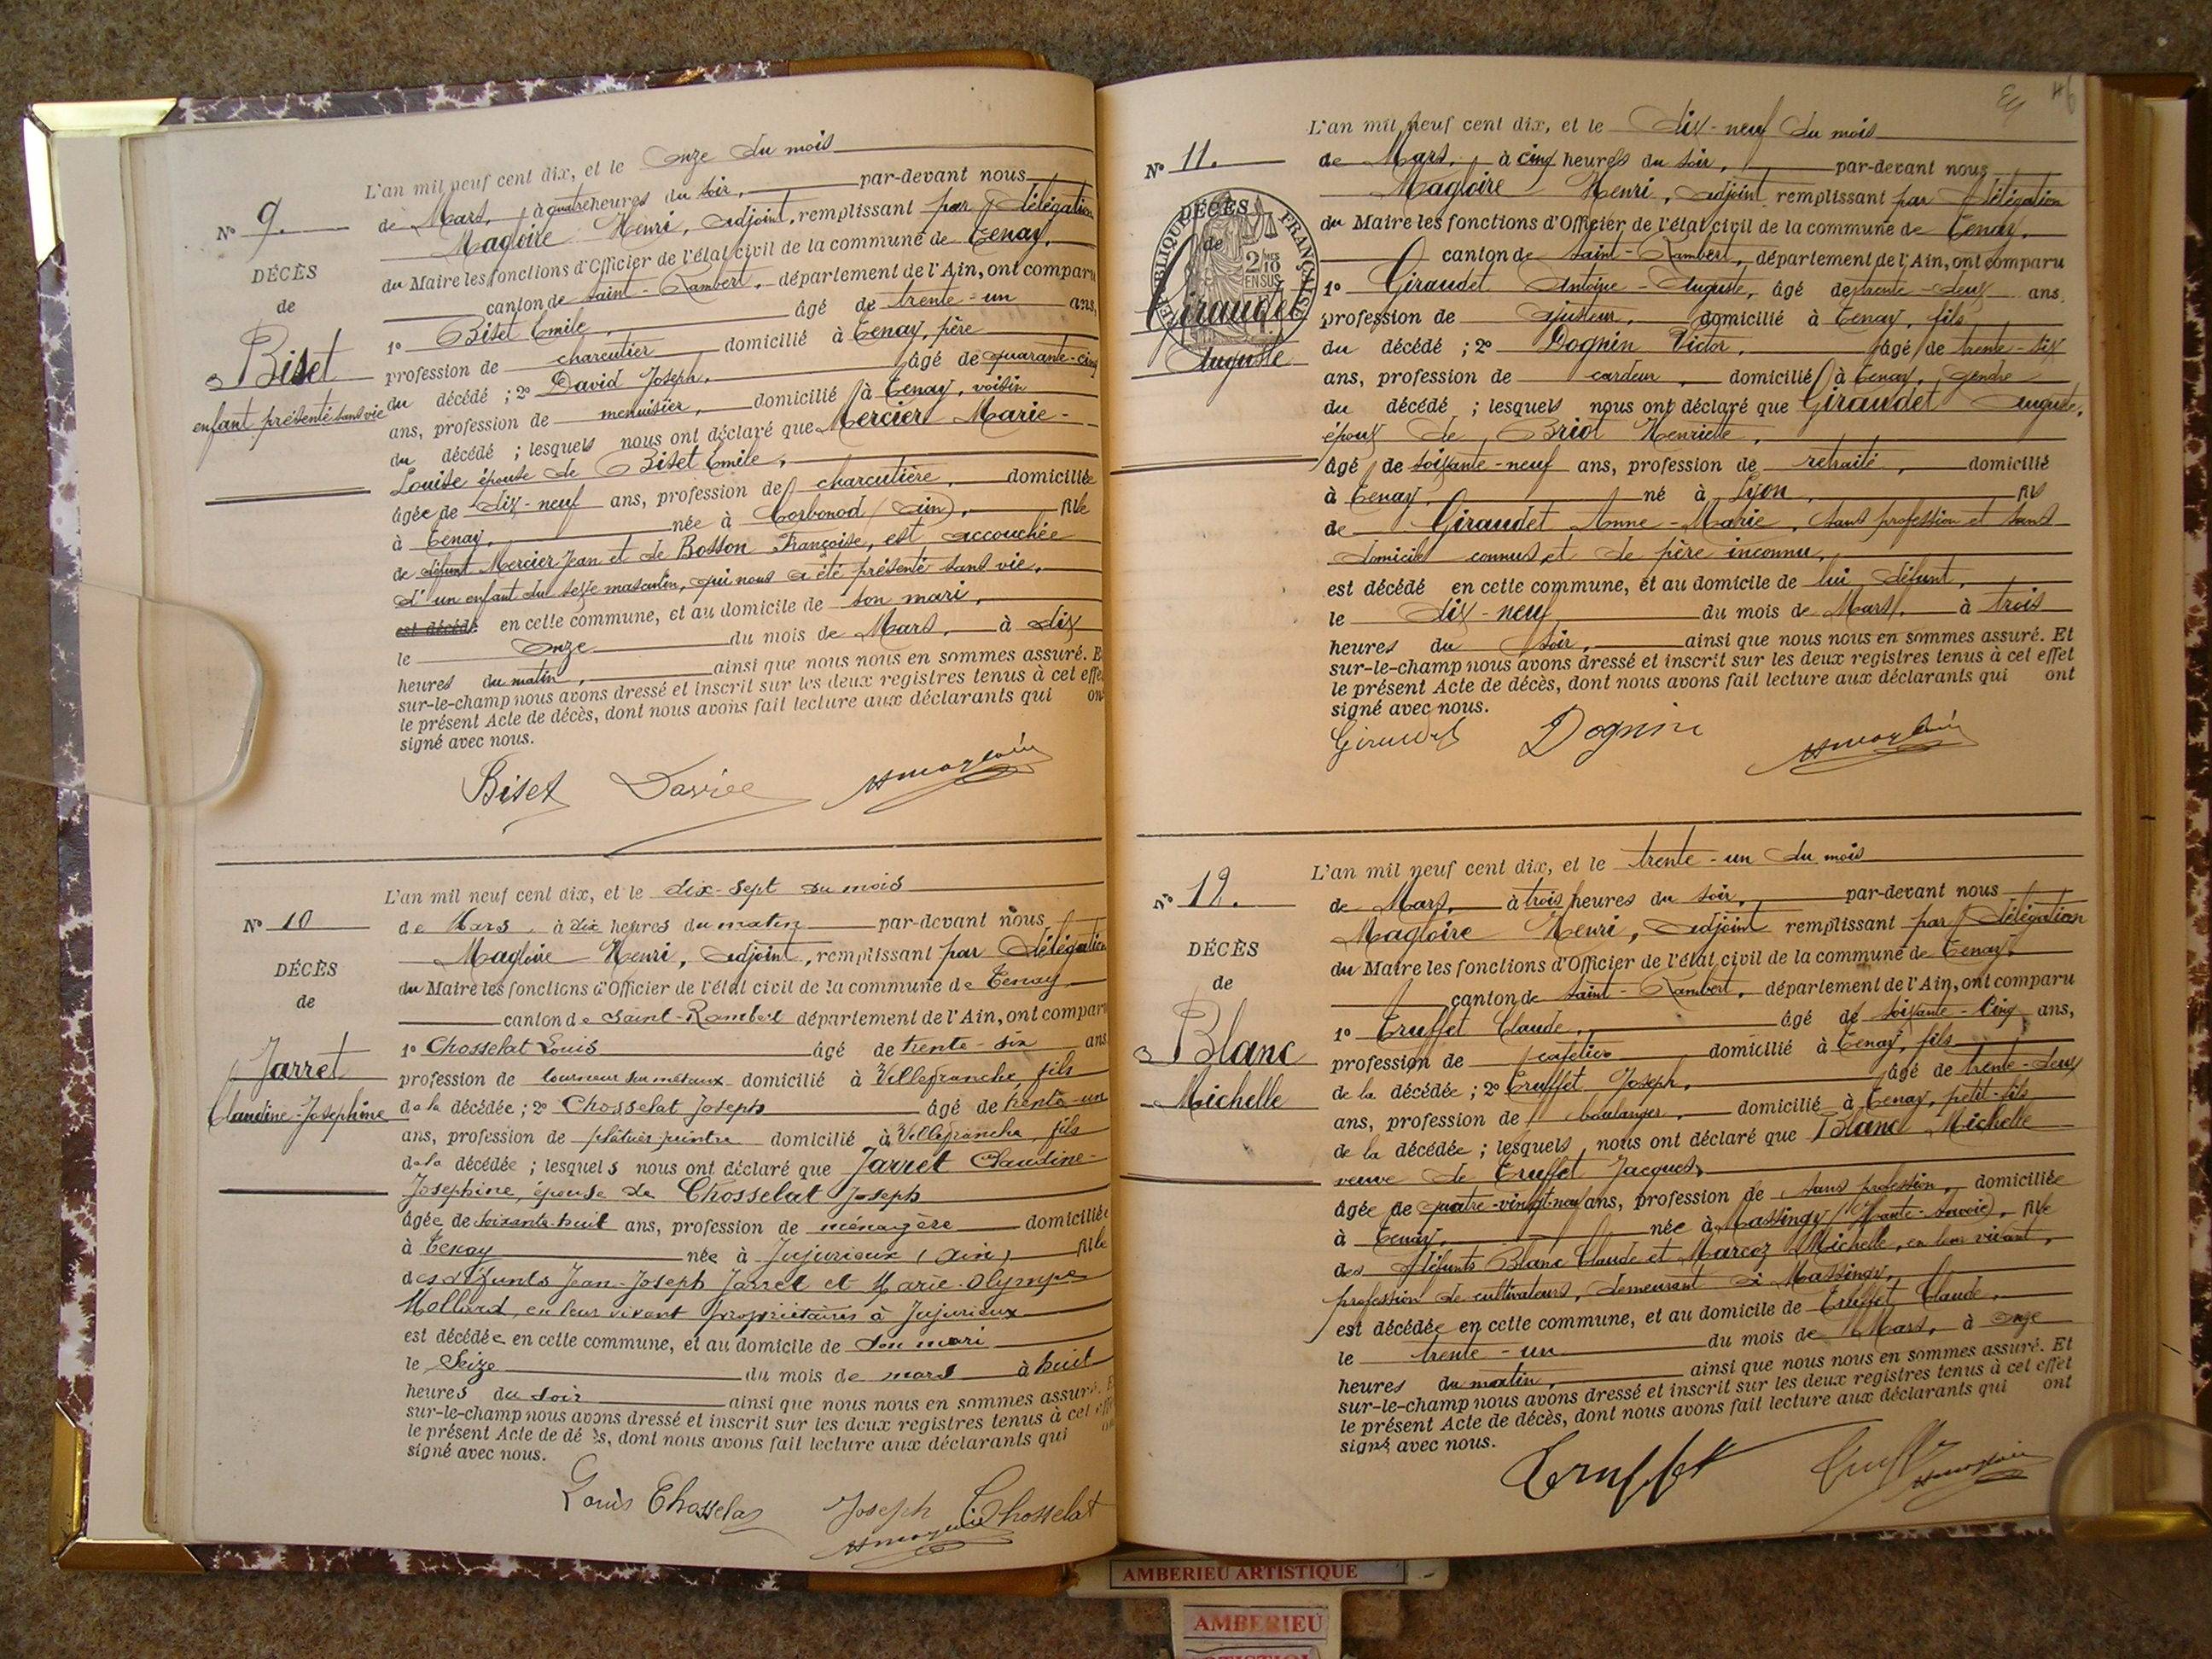 L'an mil neuf cent dix, et le onze du mois
N° 9.
de Mars, à quatre heures du soir, par-devant nous
Magloire Henri, adjoint, remplissant par délégation
du Maire les fonctions d'Officier de l'état civil de la commune de Tenay,
DÉCÈS
canton de Saint-Rambert, département de l'Ain, ont comparu
de
1° Biset Emile, âgé de trente-un ans,
Biset
profession de charcutier domicilié à Tenay, père
enfant présenté sans vie
du décédé ; 2° David Joseph, âgé de quarante-cinq
ans, profession de menuisier, domicilié à Tenay, voisin
du décédé ; lesquels nous ont déclaré que Mercier Marie-
Louise épouse de Biset Emile,
âgée de dix-neuf ans, profession de charcutière, domiciliée
à Tenay, née à Corbonod (Ain), fille
de défunt Mercier Jean et de Bosson Françoise, est accouchée
d'un enfant du sexe masculin, qui nous a été présenté sans vie,
est décédé en cette commune, et au domicile de son mari,
le onze du mois de Mars, à dix
heures du matin, ainsi que nous nous en sommes assuré. Et
sur-le-champ nous avons dressé et inscrit sur les deux registres tenus à cet effet
le présent Acte de décès, dont nous avons fait lecture aux déclarants qui ont
signé avec nous.
Biset David HMagloire
L'an mil neuf cent dix, et le dix-sept du mois
N° 10
de Mars, à dix heures du matin par-devant nous
Magloire Henri, adjoint, remplissant par délégation
DÉCÈS
du Maire les fonctions d'Officier de l'état civil de la commune de Tenay
de
canton de Saint-Rambert département de l'Ain, ont comparu
1° Chosselat Louis âgé de trente-six ans
Jarret
profession de tourneur sur métaux domicilié à Villefranche, fils
Claudine-Josephine
de la décédée ; 2° Chosselat Joseph âgé de trente-un
ans, profession de plâtrier peintre domicilié à Villefranche, fils
de la décédée ; lesquels nous ont déclaré que Jarret Claudine-
Josephine, épouse de Chosselat Joseph
âgée de soixante-huit ans, profession de ménagère domiciliée
à Tenay née à Jujurieux (Ain) fille
des défunts Jean-Joseph Jarret et Marie-Olympe
Mollard, en leur vivant propriétaires à Jujurieux
est décédée en cette commune, et au domicile de son mari
le Seize du mois de mars à huit
heures du soir ainsi que nous nous en sommes assuré. Et
sur-le-champ nous avons dressé et inscrit sur les deux registres tenus à cet effet
le présent Acte de décès, dont nous avons fait lecture aux déclarants qui ont
signé avec nous.
Louis Chosselat Joseph Chosselat
HMagloire
46
L'an mil neuf cent dix, et le dix-neuf du mois
N° 11.
de Mars, à cinq heures du soir, par-devant nous
Magloire Henri, adjoint remplissant par délégation
DÉCÈS
RÉPUBLIQUE FRANÇAISE
2 MES 10 EN SUS
du Maire les fonctions d'Officier de l'état civil de la commune de Tenay,
de
canton de Saint-Rambert, département de l'Ain, ont comparu
1° Giraudet Antoine-Auguste, âgé de trente-deux ans,
Giraudet
profession de ajusteur, domicilié à Tenay, fils
Auguste
du décédé ; 2° Dognin Victor, âgé de trente-six
ans, profession de cardeur, domicilié à Tenay, gendre
du décédé ; lesquels nous ont déclaré que Giraudet Auguste,
époux de Briot Henriette,
âgé de soixante-neuf ans, profession de retraité, domicilié
à Tenay, né à Lyon, fils
de Giraudet Anne-Marie, sans profession et sans
domicile connus, et de père inconnu,
est décédé en cette commune, et au domicile de lui défunt,
le dix-neuf du mois de Mars, à trois
heures du soir, ainsi que nous nous en sommes assuré. Et
sur-le-champ nous avons dressé et inscrit sur les deux registres tenus à cet effet
le présent Acte de décès, dont nous avons fait lecture aux déclarants qui ont
signé avec nous.
Giraudet Dognin HMagloire
L'an mil neuf cent dix, et le trente-un du mois
N° 12.
de Mars, à trois heures du soir, par-devant nous
Magloire Henri, adjoint remplissant par délégation
DÉCÈS
du Maire les fonctions d'Officier de l'état civil de la commune de Tenay,
de
canton de Saint-Rambert, département de l'Ain, ont comparu
1° Truffet Claude, âgé de soixante-cinq ans,
Blanc
profession de cafetier domicilié à Tenay, fils
Michelle
de la décédée ; 2° Truffet Joseph, âgé de trente-deux
ans, profession de boulanger, domicilié à Tenay, petit-fils
de la décédée ; lesquels nous ont déclaré que Blanc Michelle
veuve de Truffet Jacques,
âgée de quatre-vingt-neuf ans, profession de sans profession, domiciliée
à Tenay, née à Massingy (Haute-Savoie), fille
des défunts Blanc Claude et Marcoz Michelle, en leur vivant,
profession de cultivateurs, demeurant à Massingy,
est décédée en cette commune, et au domicile de Truffet Claude,
le trente-un du mois de Mars, à onze
heures du matin, ainsi que nous nous en sommes assuré. Et
sur-le-champ nous avons dressé et inscrit sur les deux registres tenus à cet effet
le présent Acte de décès, dont nous avons fait lecture aux déclarants qui ont
signé avec nous.
Truffet Truffet HMagloire
AMBERIEU ARTISTIQUE
AMBERIEU